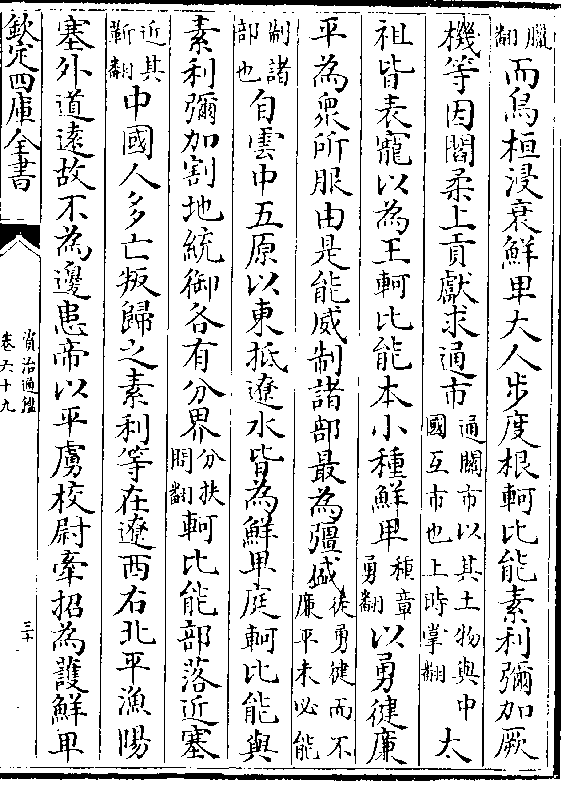 臘翻而烏桓浸衰鮮卑大人步度根軻比能素利彌加厥
機等因閻柔上貢獻求通市通關市以其土物與中國互市也上時掌翻太
祖皆表寵以為王軻比能本小種鮮卑種章勇翻以勇健廉
平為衆所服由是能威制諸部最為彊盛徒勇健而不廉平未必能
制諸部也自雲中五原以東抵遼水皆為鮮卑庭軻比能與
素利彌加割地統御各有分界分扶問翻軻比能部落近塞
近其靳翻中國人多亡叛歸之素利等在遼西右北平漁陽
塞外道遠故不為邊患帝以平虜校尉牽招為護鮮卑
欽定四庫全書
資治通鑑
卷六十九
三十